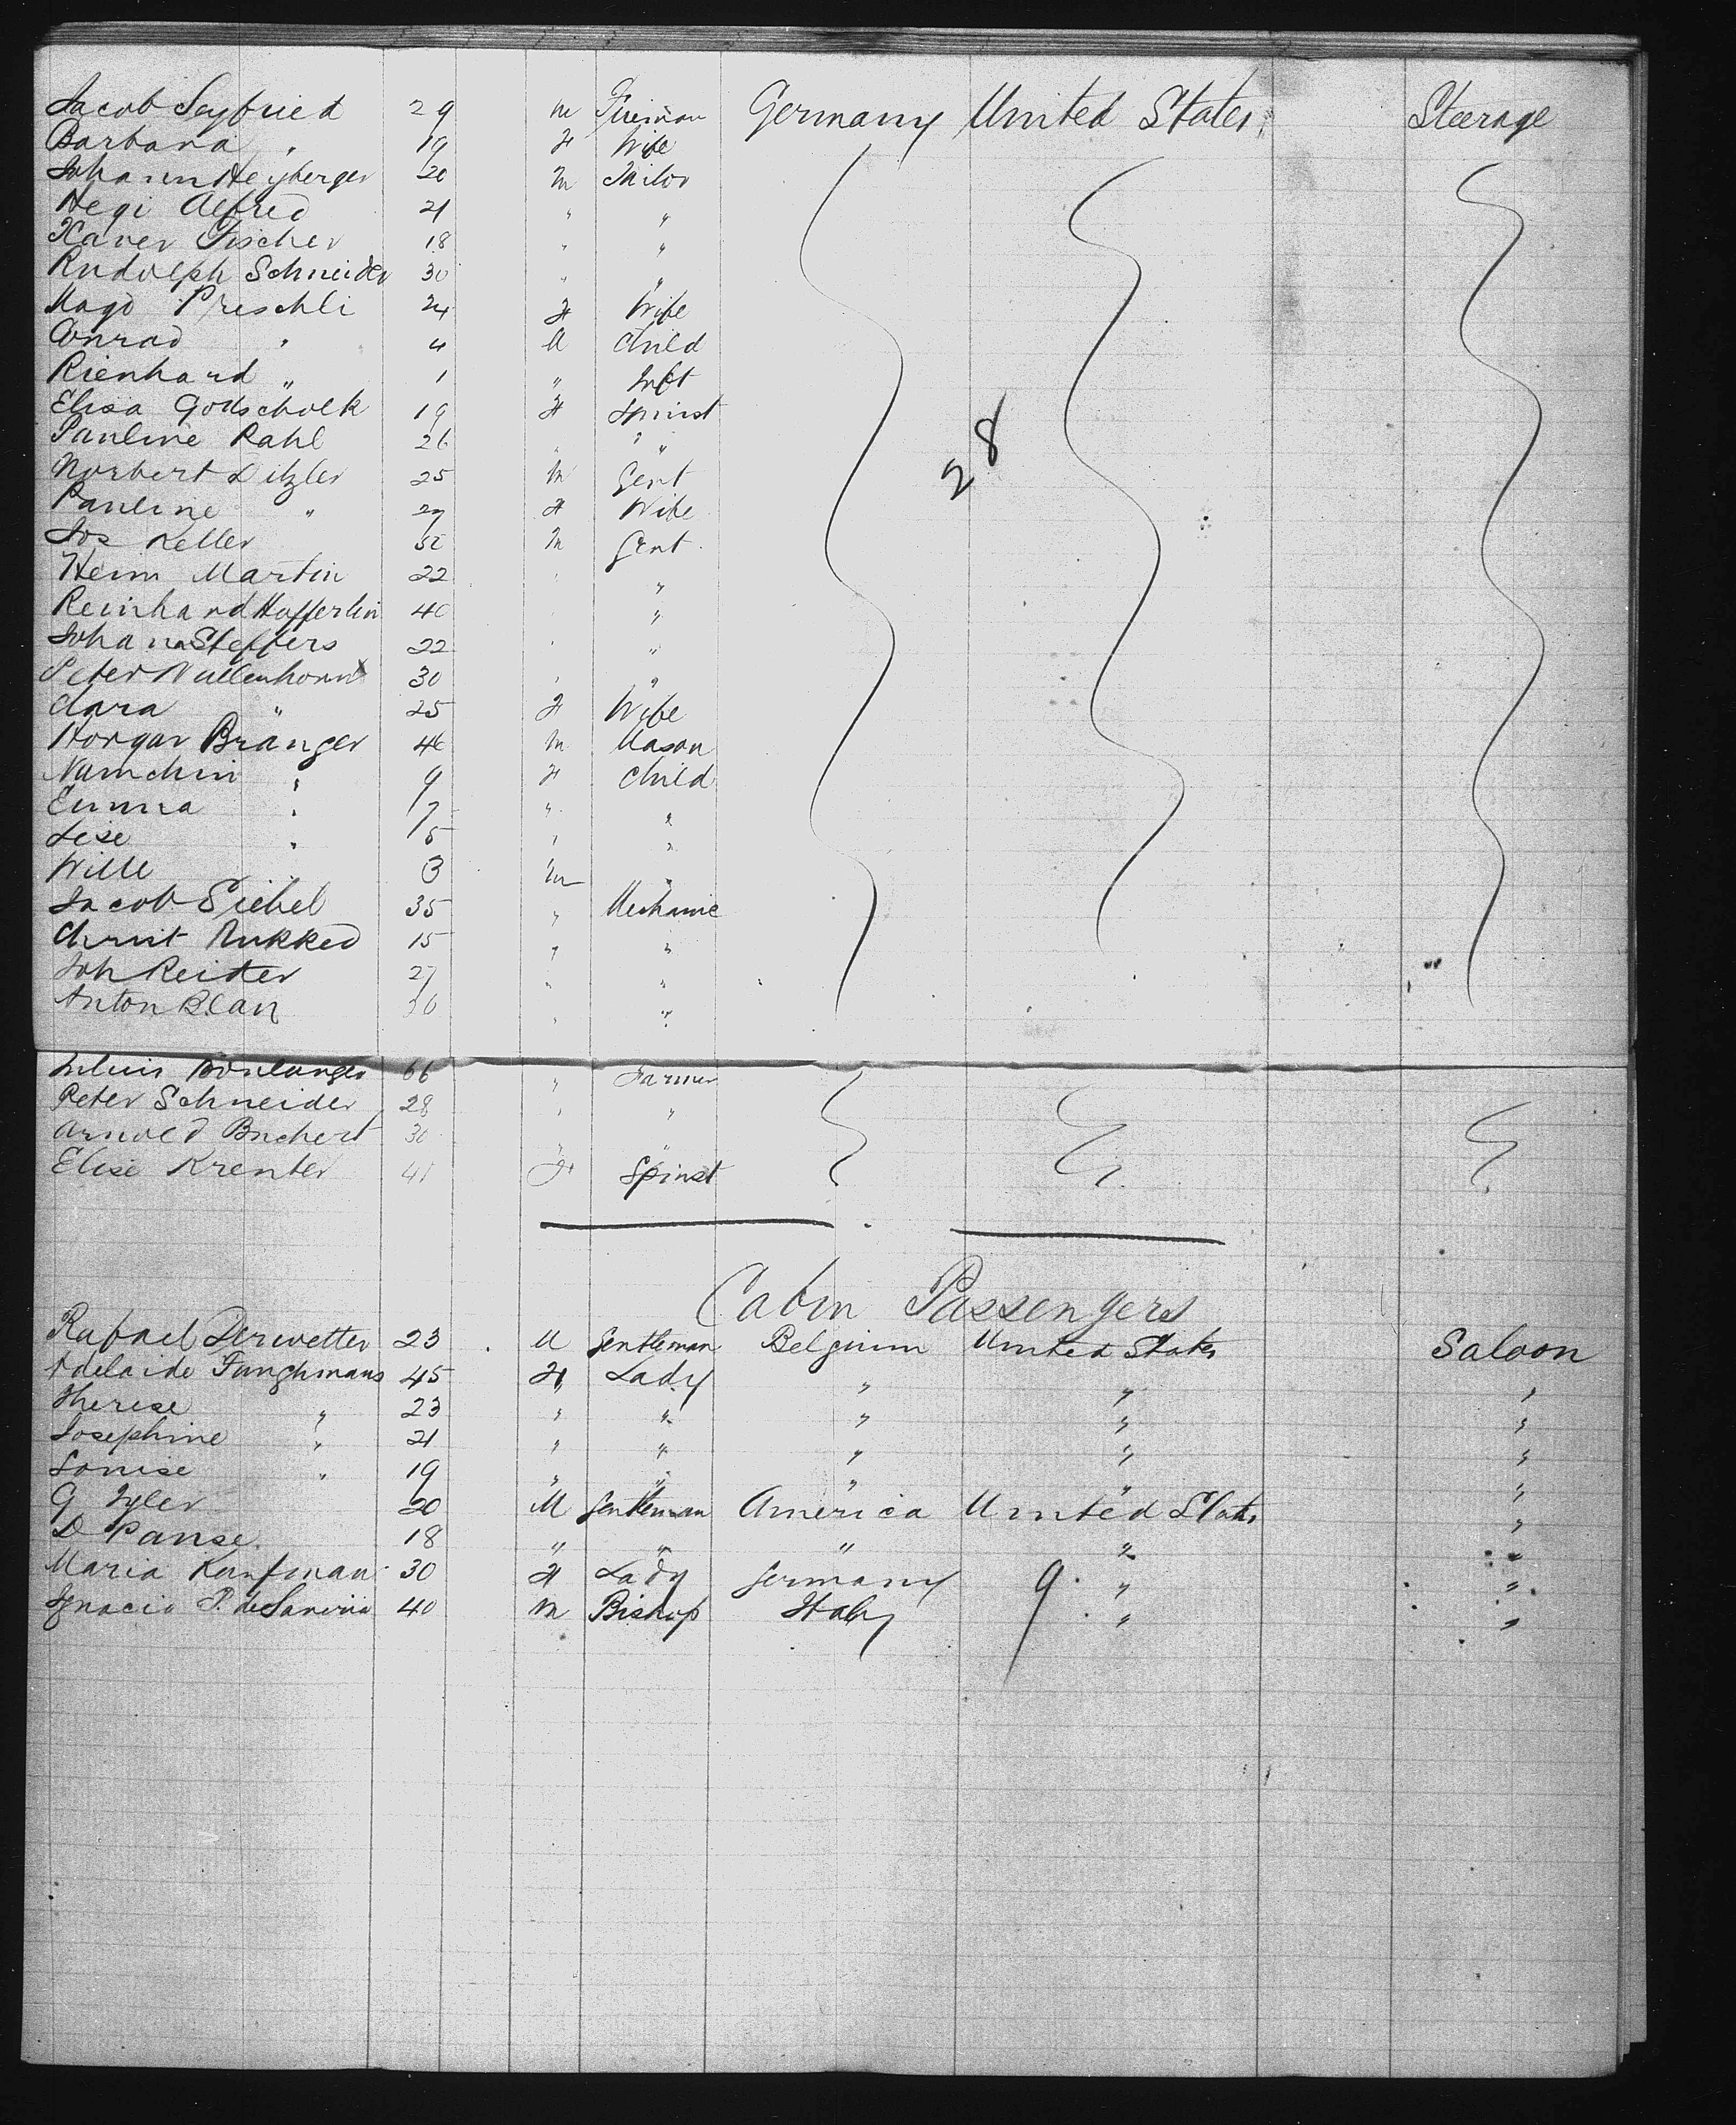 Jacob Seyfried 29 m Fireman Germany United States Steerage
Barbara " 19 F Wife
Johann Heyberger 20 M Tailor
Hegi Alfred 21 " "
Xaver Fischer 18 " "
Rudolph Schneider 30 " "
Mago Preschli 24 F Wife
Conrad " 4 M Child
Rienhard " 1 " Inft
Elisa Godscholk 19 F Spinst
Pauline Rahl 26 " "
Norbert Ditzler 25 M Gent
Pauline " 27 F Wife
Jos Keller 32 M Gent
Heim Martin 22 " "
Reinhard Hafferlin 40 " "
Johann Steffers 22 " "
Peter Wallenhorn 30 " "
Clara " 25 F Wife
Horgar Branger 46 M Mason
Namchin " 9 F Child
Emma " 7 " "
Lise " 5 " "
Wille 3 M "
Jacob Siebel 35 " Mechanic
Christ Rukked 15 " "
Joh Reiter 27 " "
Anton Blan 30 " "
28
Julius Boulanger 66 " Farmer
Peter Schneider 28 " "
Arnold Buchert 30 " "
Elise Krenter 41 F Spinst
Cabin Passengers
Rafael Derwetter 23 M Gentleman Belgium United States Saloon
Adelaide Tunghmans 45 F Lady " " "
Therese " 23 " " " " "
Josephine " 21 " " " " "
Louise " 19 " " " " "
G Tyler 20 M Gentleman America United States "
D Panse 18 " " " " "
Maria Kaufman 30 F Lady Germany " "
Ignacio P. de 40 M Bishop Italy " "
9